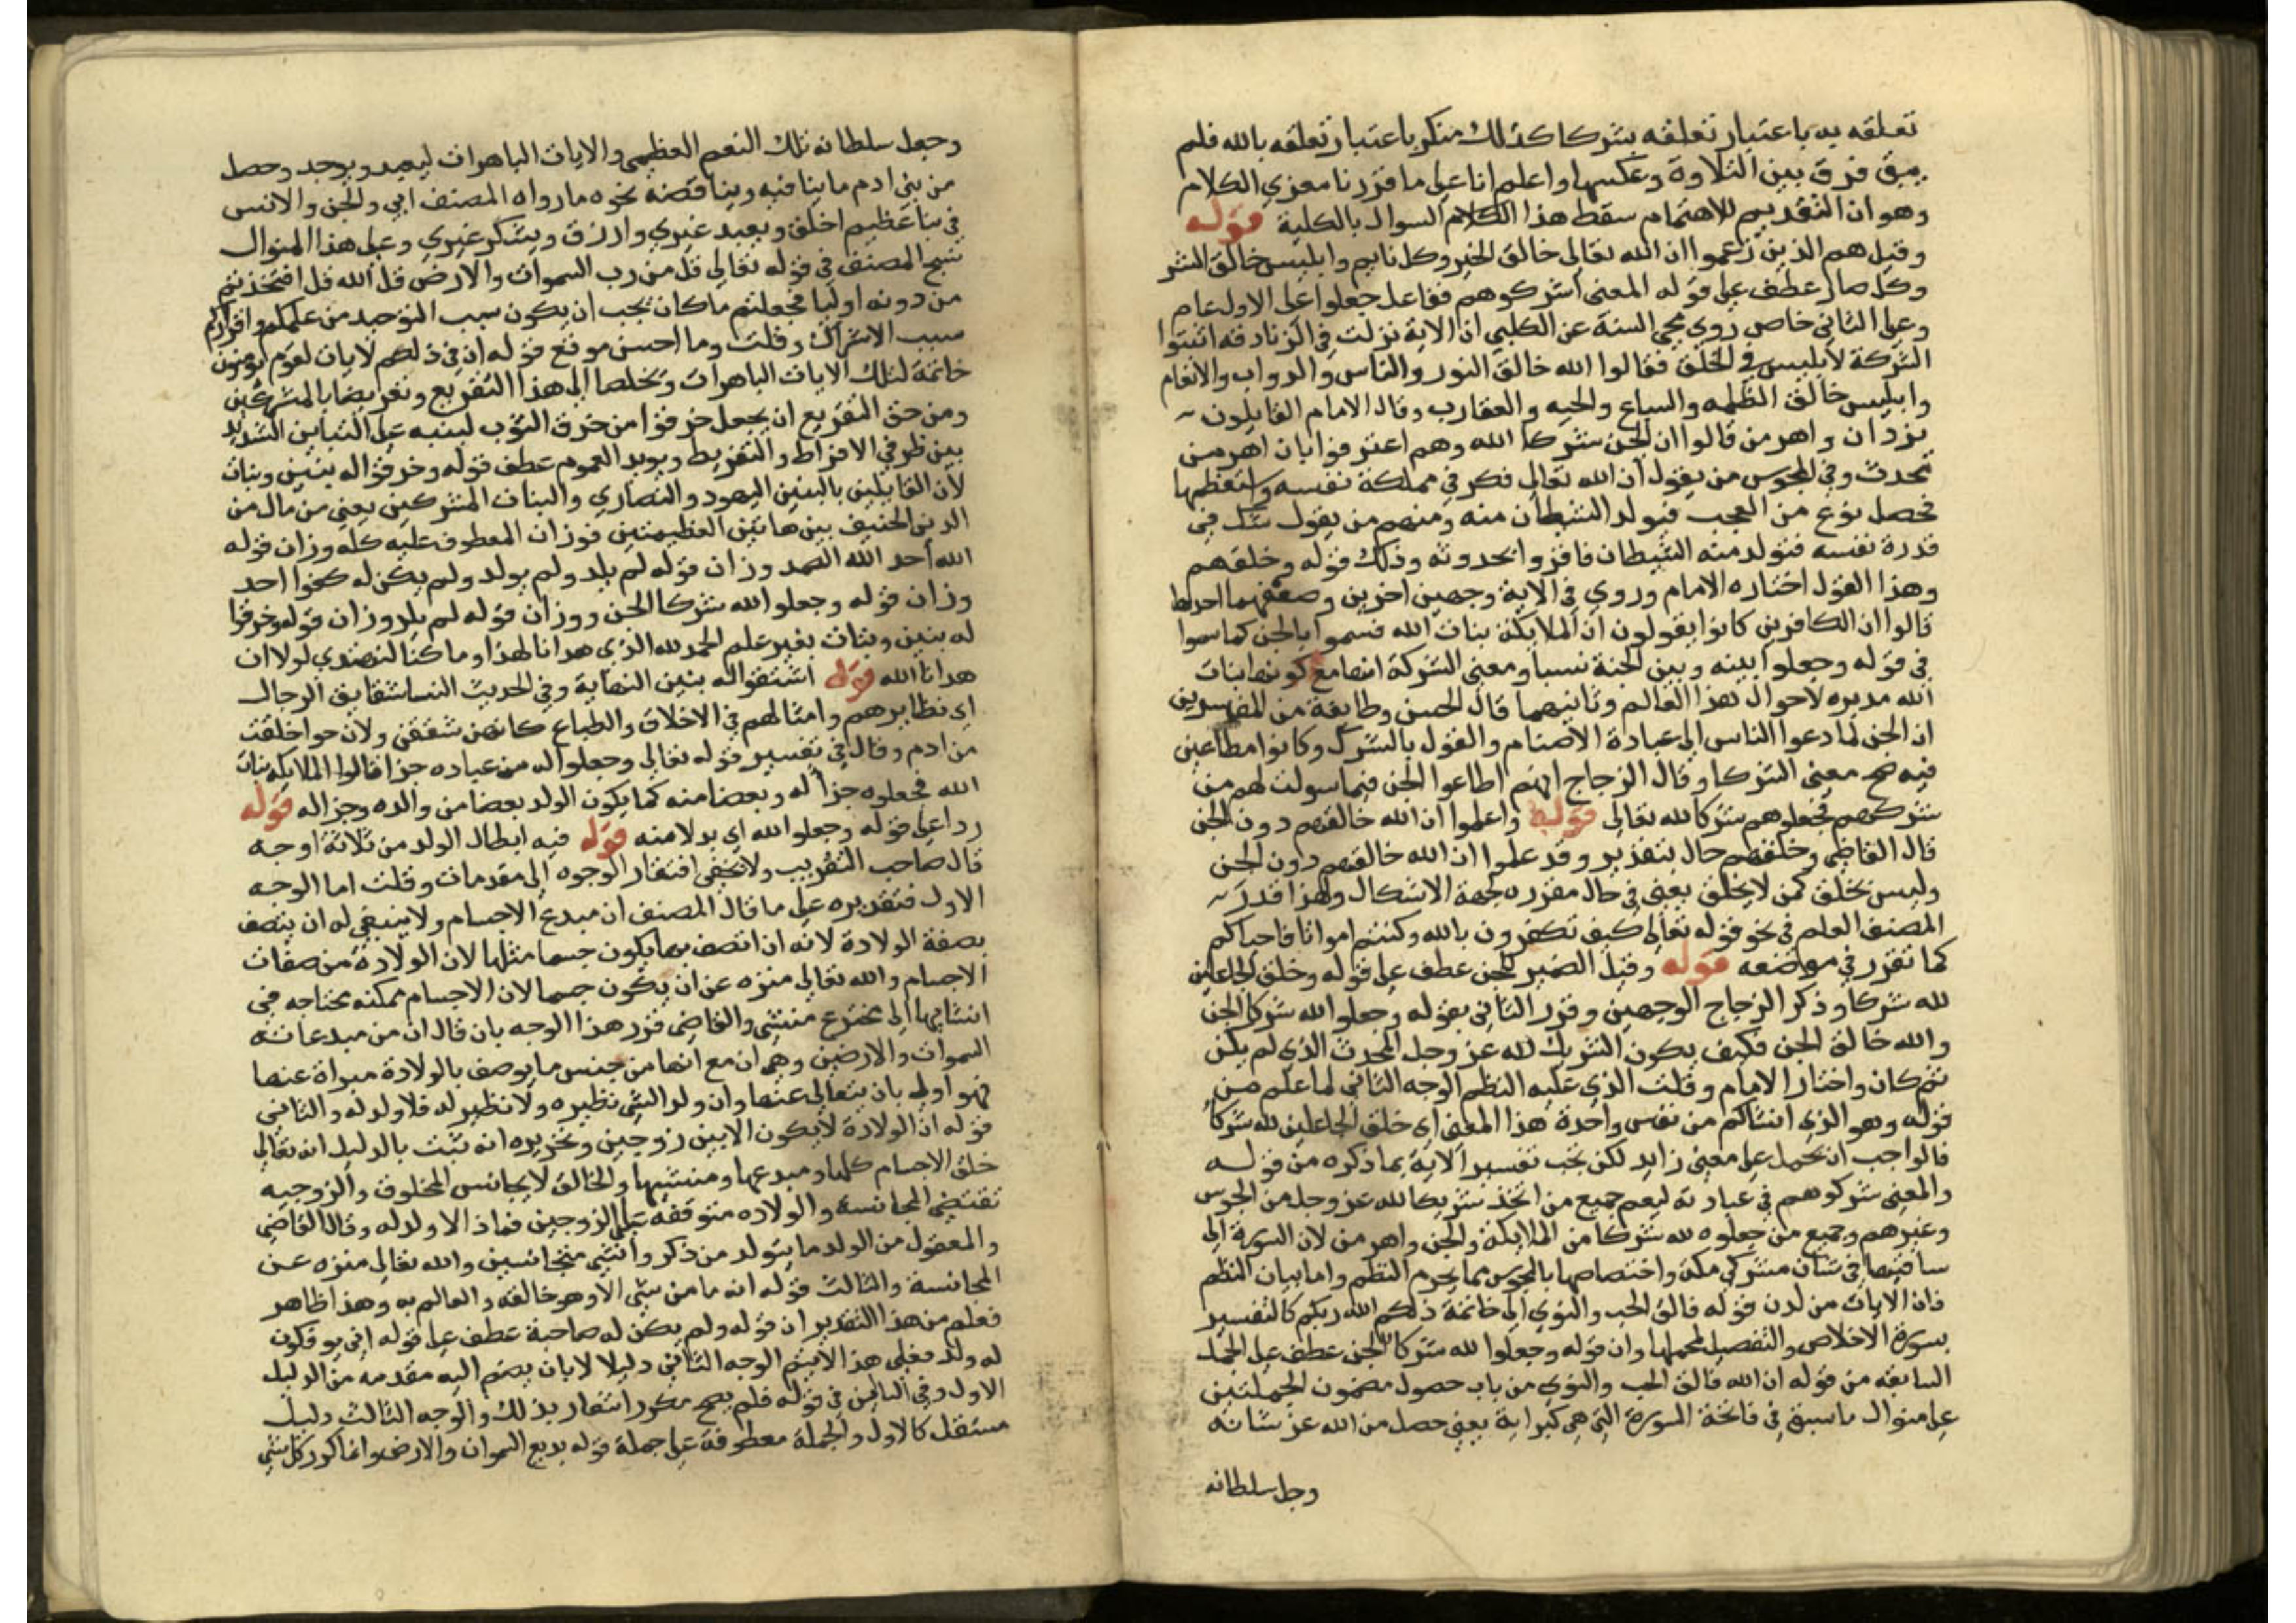 تعلقه به باعتبار تعلقه بشركا كذلك منكر باعتبار تعلقه بالله فلم
يبق فرق بين التلاوة وعكسها واعلم انا على ما قررنا مغزي الكلام
وهو ان التقديم للاهتمام سقط هذا الكلام السوال بالكلية قوله
وقيل هم الذين زعموا ان الله تعالى خالق الخير وكل نافع وابليس خالق الشر
وكل ضار عطف على قوله المعنى اشركوهم ففاعل جعلوا على الاول عام
وعلى الثاني خاص روي محيي السنة عن الكلبي ان الاية نزلت في الزنادقه اثبتوا
الشركة لابليس في الخلق فقالوا الله خالق النور والناس والدواب والانعام
وابليس خالق الظلمه والسباع والحيه والعقارب وقال الامام القايلون
يزدان واهرمن قالوا ان لجن شركا الله وهم اعترفوا بان اهرمن
محدث وفي المجوس من يقول ان الله تعالى فكر في مملكة نفسه واستعظمها
فحصل نوع من العجب فتولد الشيطان منه ومنهم من يقول شك في
قدرة نفسه فتولد منه الشيطان فاقروا بحدوثه وذلك قوله وخلقهم
وهذا القول اختاره الامام وروي في الاية وجهين اخرين وضعفهما احدها
قالوا ان الكافرين كانوا يقولون ان الملايكة بنات الله فسموا بالجن كما سموا
في قوله وجعلوا بينه وبين الجنة نسبا ومعنى الشركة انها مع كونها بنات
الله مدبره لاحوال هذا العالم وثانيهما قال الحسن وطايفة من المفسرين
ان الجن لما دعوا الناس الى عبادة الاصنام والقول بالشرك وكانوا مطاعين
فيه صح معنى الشركا وقال الزجاج انهم اطاعوا الجن فيما سولت لهم من
شركهم فجعلوهم شركا لله تعالى قوله واعلموا ان الله خالقهم دون الجن
قال القاضي وخلقهم حال بتقدير وقد علموا ان الله خالقهم دون الجن
وليس يخلق كمن لا يخلق يعني في حال مقرره لجهة الاشكال ولهذا قدر
المصنف العلم في نحو قوله تعالى كيف تكفرون بالله وكنتم امواتا فاحياكم
كما تقرر في موضعه قوله وقيل الضمير للجن عطف على قوله وخلق الجاعلين
لله شركا وذكر الزجاج الوجهين وقرر الثاني بقوله وجعلوا الله شركا الجن
والله خالق الجن فكيف يكون الشريك لله عز وجل المحدث الذي لم يكن
ثم كان واختار الامام وقلت الذي عليه النظم الوجه الثاني لما علم من
قوله وهو الذي انشاكم من نفس واحدة هذا المعنى اي خلق الجاعلين لله شركا
فالواجب ان يحمل على معنى زايد لكن يجب تفسير الاية بما ذكره من قوله
والمعنى شركوهم في عبادته ليعم جميع من اتخذ شريكا لله عز وجل من المجوس
وغيرهم وجميع من جعلوه لله شركا من الملايكة والجن واهرمن لان السورة الى
ساقتها في شان مشركي مكة واختصاصها بالمجوس مما يخرم النظم واما بيان النظم
فان الايات من لدن قوله فالق الحب والنوي الى خاتمة ذلكم الله ربكم كالتفسير
بسورة الاخلاص والتفصيل لمجملها وان قوله وجعلوا لله شركا الجن عطف على الجمل
السابقه من قوله ان الله فالق الحب والنوي من باب حصول مضمون الجملتين
على منوال ما سبق في فاتحة السورة التي هي كبراية يعني حصل من الله عز شانه
وجل سلطانه
وجعل سلطانه تلك النعم العظيمي والايات الباهرات ليعبد ويوحد وحصل
من بني ادم ما ينافيه ويناقضه نحوه ما رواه المصنف اني والجن والانس
في نبا عظيم اخلق ويعبد غيري وارزق ويشكر غيري وعلى هذا المنوال
نسج المصنف في قوله تعالى قل من رب السموات والارض قل الله قل افتخذتم
من دونه اوليا فجعلتم ما كان يجب ان يكون سبب التوحيد من علمكم واقراركم
سبب الاشراك وقلت وما احسن موقع قوله ان في ذلكم لايات لقوم يومنون
خاتمة لتلك الايات الباهرات وتخلصا الى هذا التقريع وتعريضا بالمشركين
ومن حق التقريع ان يجعل خرقوا من خرق الثوب لينبه على التباين الشديد
بين طرفي الافراط والتفريط ويويد العموم عطف قوله وخرقوا له بنين وبنات
لان القايلين بالبنين اليهود والنصاري والبنات المشركين يعني من مال من
الدين الحنيف بين هاتين العظيمتين فوزان المعطوف عليه كله وزان قوله
الله احد الله الصمد وزان قوله لم يلد ولم يولد ولم يكن له كفوا احد
وزان قوله وجعلوا الله شركا الجن ووزان قوله لم يلد وزان قوله وخرقوا
له بنين وبنات بغير علم الحمد لله الذي هدانا لهذا وما كنا لنهتدي لولا ان
هدانا الله قوله اشتقوا له بنين النهاية وفي الحديث النسا شقايق الرجال
اي نظايرهم وامثالهم في الاخلاق والطباع كانهن شققن ولان حوا خلقت
من ادم وقال في تفسير قوله تعالى وجعلوا له من عباده جزا قالوا الملايكه بنات
الله فجعلوه جزأ له وبعضا منه كما يكون الولد بعضا من والده وجزا له قوله
ردا على قوله وجعلوا الله اي بدلا منه قوله فيه ابطال الولد من ثلاثة اوجه
قال صاحب التقريب ولا يخفى افتقار الوجوه الى مقدمات وقلت اما الوجه
الاول فتقديره على ما قال المصنف ان مبدع الاجسام ولا ينبغي له ان يتصف
بصفة الولادة لانه ان اتصف بها يكون جسما مثلها لان الولادة من صفات
الاجسام والله تعالى منزه عن ان يكون جسما لان الاجسام ممكنه محتاجه في
انشايها الى مخترع منشي والقاضي قرر هذا الوجه بان قال ان من مبدعاته
السموات والارضين وهي ان مع انها من جنس ما يوصف بالولادة مبراة عنها
فهو اولي بان يتعالى عنها وان ولد الشي نظيره ولا نظير له فلا ولد له والثاني
قوله ان الولادة لا يكون الا بين زوجين وتحريره انه ثبت بالدليل انه تعالى
خلق الاجسام كلها ومبدعها ومنشيها والخالق لا يجانس المخلوق والزوجيه
تقتضي المجانسة والولاده متوقفه على الزوجين فماذا لا ولد له وقال القاضي
والمعقول من الولد ما يتولد من ذكر وانثي متجانسين والله تعالى منزه عن
المجانسة والثالث قوله انه ما من شي الا وهو خالقه والعالم به وهذا ظاهر
فعلم من هذا التقدير ان قوله ولم يكن له صاحبة عطف على قوله اني يو فكون
له ولد فعلى هذا لا يتم الوجه الثاني دليلا لا بان يضم اليه مقدمه من الدليل
الاول وفي في قوله فلم يصح اشعار بذلك والوجه الثالث دليل
مستقل كالاول والجملة معطوفة على جملة قوله بديع السموات والارض وانما كرر كل شي